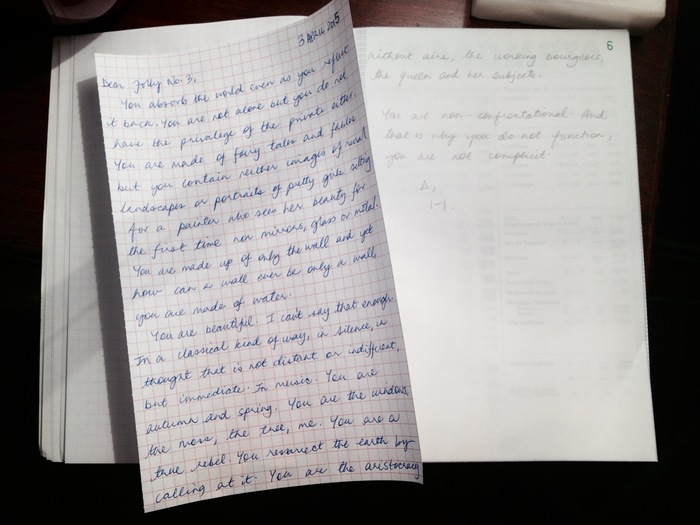 3 APRIL 2015
Dear Folly No. 3,
You absorb the world even as you reflect
it back. You are not alone but you do not
have the privilege of the private either.
You are made of fairy tales and fables
but you contain neither images of rural
landscapes or portraits of pretty girls sitting
for a painter who sees her beauty for
the first time nor mirrors, glass or metal.
You are made up of only the wall and yet
how can a wall ever be only a wall,
you are made of water.
You are beautiful. I can't say that enough.
In a classical kind of way, in silence, in
thought that is not distant or indifferent,
but immediate. In music. You are
autumn and spring. You are the windows,
the moss, the tree, me. You are a
true rebel. You resurrect the earth by
calling at it. You are the aristocracy
6
without airs, the working bourgeois,
the queen and her subjects.
You are non-confrontational. And
that is why you do not function,
you are not complicit.